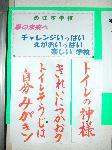 夢の実現へ
チャレンジいっぱい
えがおいっぱい
楽しい学校
トイレの神様
きれいにかがやく
トイレそうじは
自分みがき